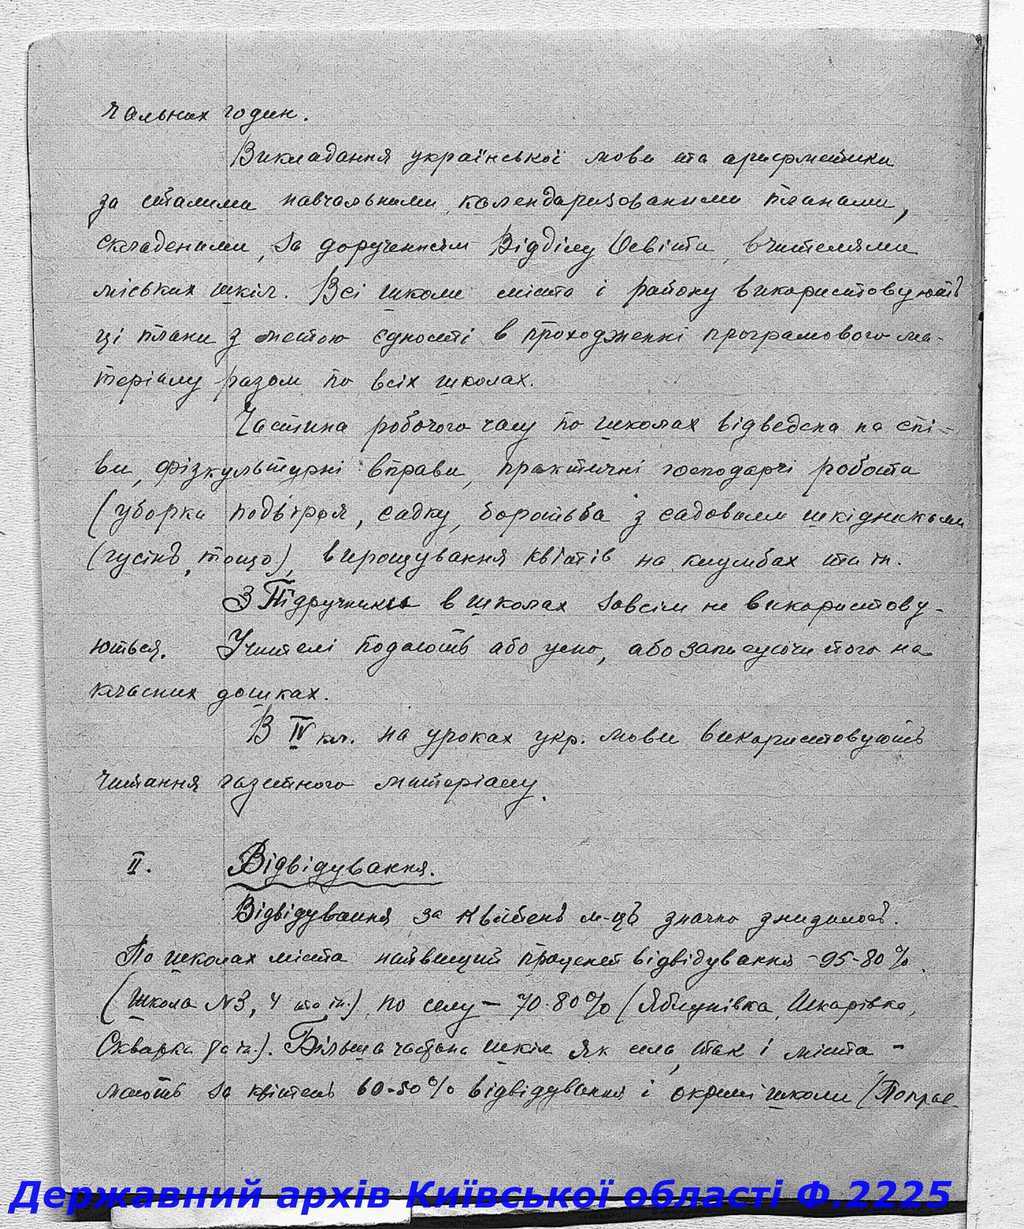 чальних годин.
Викладання української мови та арифметики
за сталими навчальними, календаризованими планами,
складеними, за дорученням Відділу Освіти, вчителями
міських шкіл. Всі школи міста і району використовують
ці плани з метою єдності в проходженні програмового ма-
теріалу разом по всіх школах.
Частина робочого часу по школах відведена на спі-
ви, фізкультурні вправи, практичні господарчі роботи
(уборка подвір'я, садку, боротьба з садовими шкідниками
(гусінь, тощо), вирощування квітів на клумбах та ін.
З Підручники в школах зовсім не використову-
ються. Учителі подають або усно, або записуючи його на
класних дошках.
В IV кл. на уроках укр. мови використовують
читання газетного матеріалу.
II. Відвідування.
Відвідування за квітень м-ць значно знизилось.
По школах міста найвищий процент відвідування - 95-80%
(Школа N3, 4 та ін.), по селу - 70-80% (Яблунівка, Шкарівка,
Скварка та ін.). Більша частина шкіл як села, так і міста -
мають за квітень 60-50% відвідування і окремі школи (Поправ
Державний архів Київської області Ф.2225